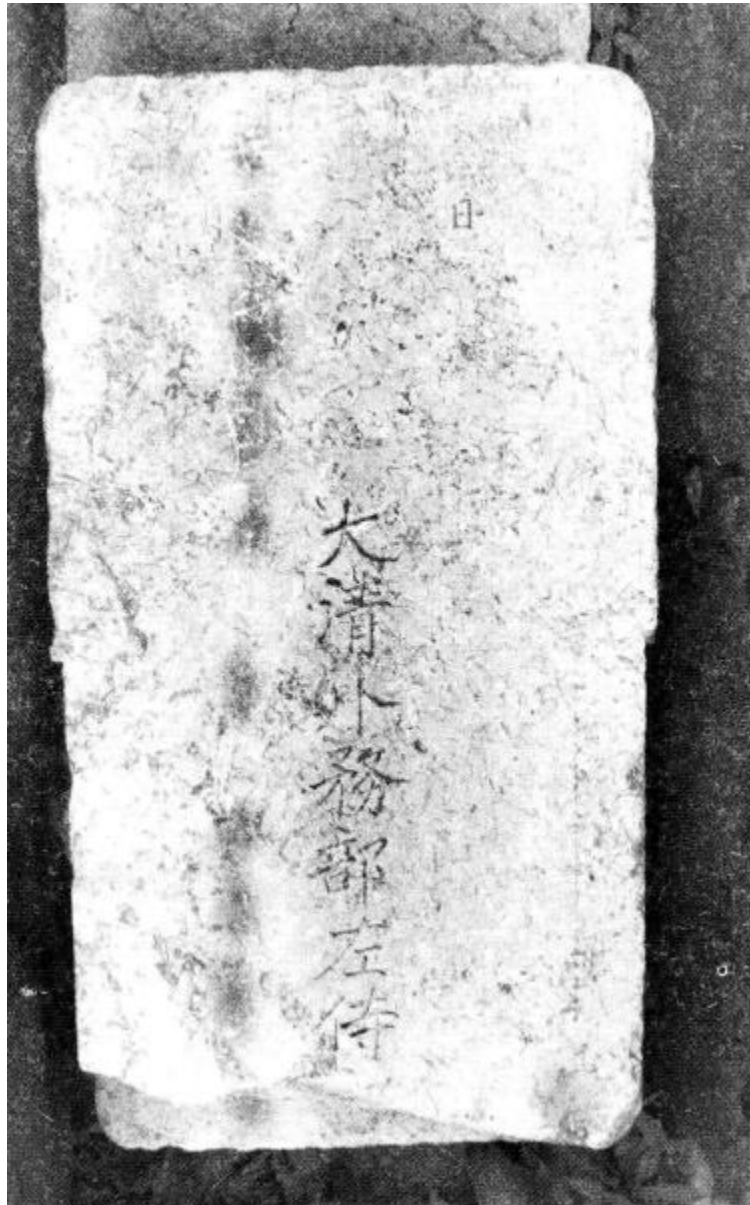 日
大清外務部左侍